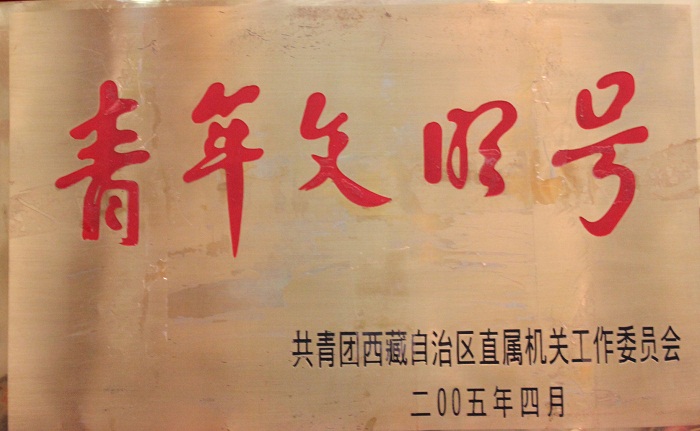 青年文明号
共青团西藏自治区直属机关工作委员会
二00五年四月